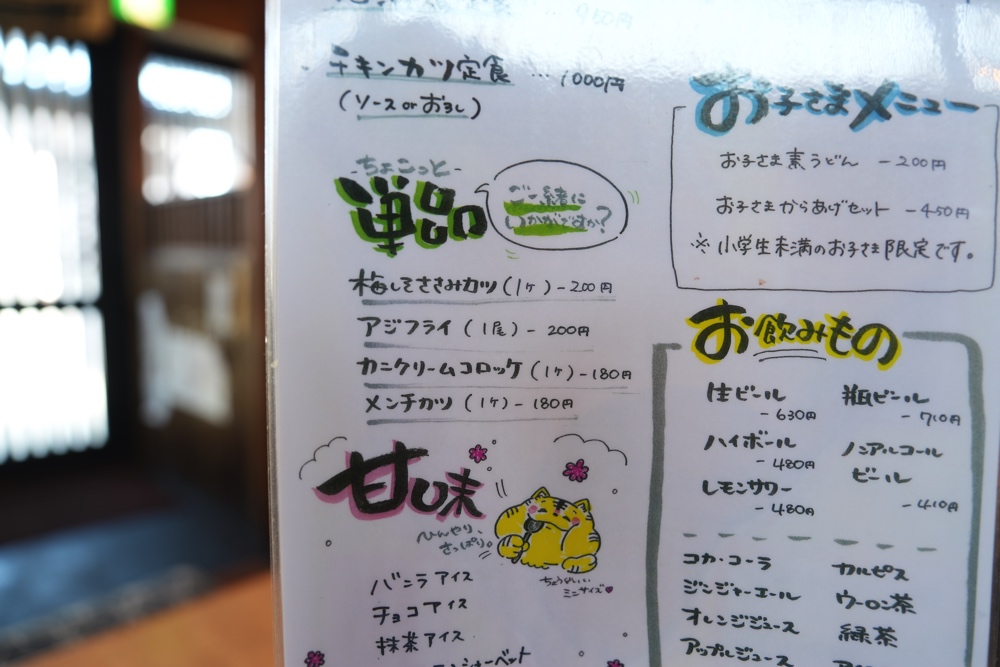 チキンカツ定食 … 1000円
(ソース or おろし)
-ちょこっと-
単品
ご一緒に
いかがですか?
梅しそささみカツ (1ヶ) - 200円
アジフライ (1尾) - 200円
カニクリームコロッケ (1ヶ) - 180円
メンチカツ (1ヶ) - 180円
甘味
ひんやり、
さっぱり。
ちょうどいい
ミニサイズ
バニラアイス
チョコアイス
抹茶アイス
シャーベット
お子さまメニュー
お子さま素うどん - 200円
お子さまからあげセット - 450円
※小学生未満のお子さま限定です。
お飲みもの
生ビール
- 630円
瓶ビール
- 710円
ハイボール
- 480円
ノンアルコール
ビール
- 410円
レモンサワー
- 480円
コカ・コーラ
カルピス
ジンジャーエール
ウーロン茶
オレンジジュース
緑茶
アップルジュース